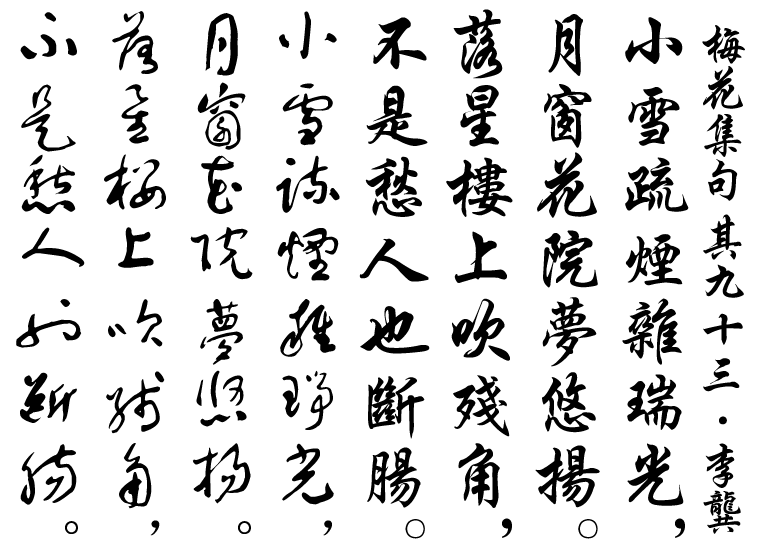 梅花集句其九十三・李龔
小雪疏煙雜瑞光，
月窗花院夢悠揚。
落星樓上吹殘角，
不是愁人也斷腸。
小雪疏煙雜瑞光，
月窗花院夢悠揚。
落星樓上吹殘角，
不是愁人也斷腸。